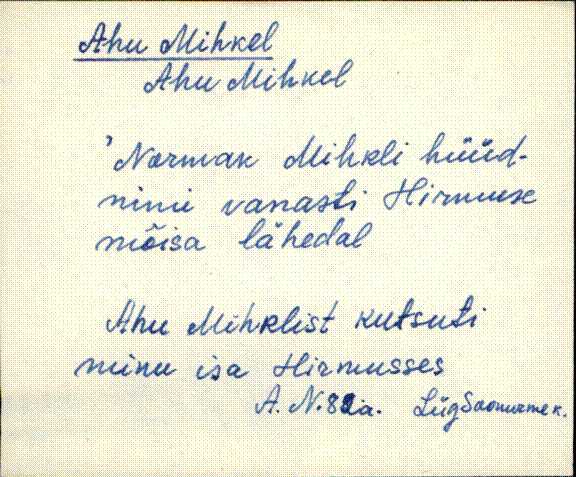 Ahu Mihkel
Ahu Mihkel
'Normak Mihkli hüüd-
nimi vanasti Hirmuse
mõisa lähedal
Ahu Mihklist kutsuti
minu isa Hirmusses
A. N. 82 a. LügSoonurme k.